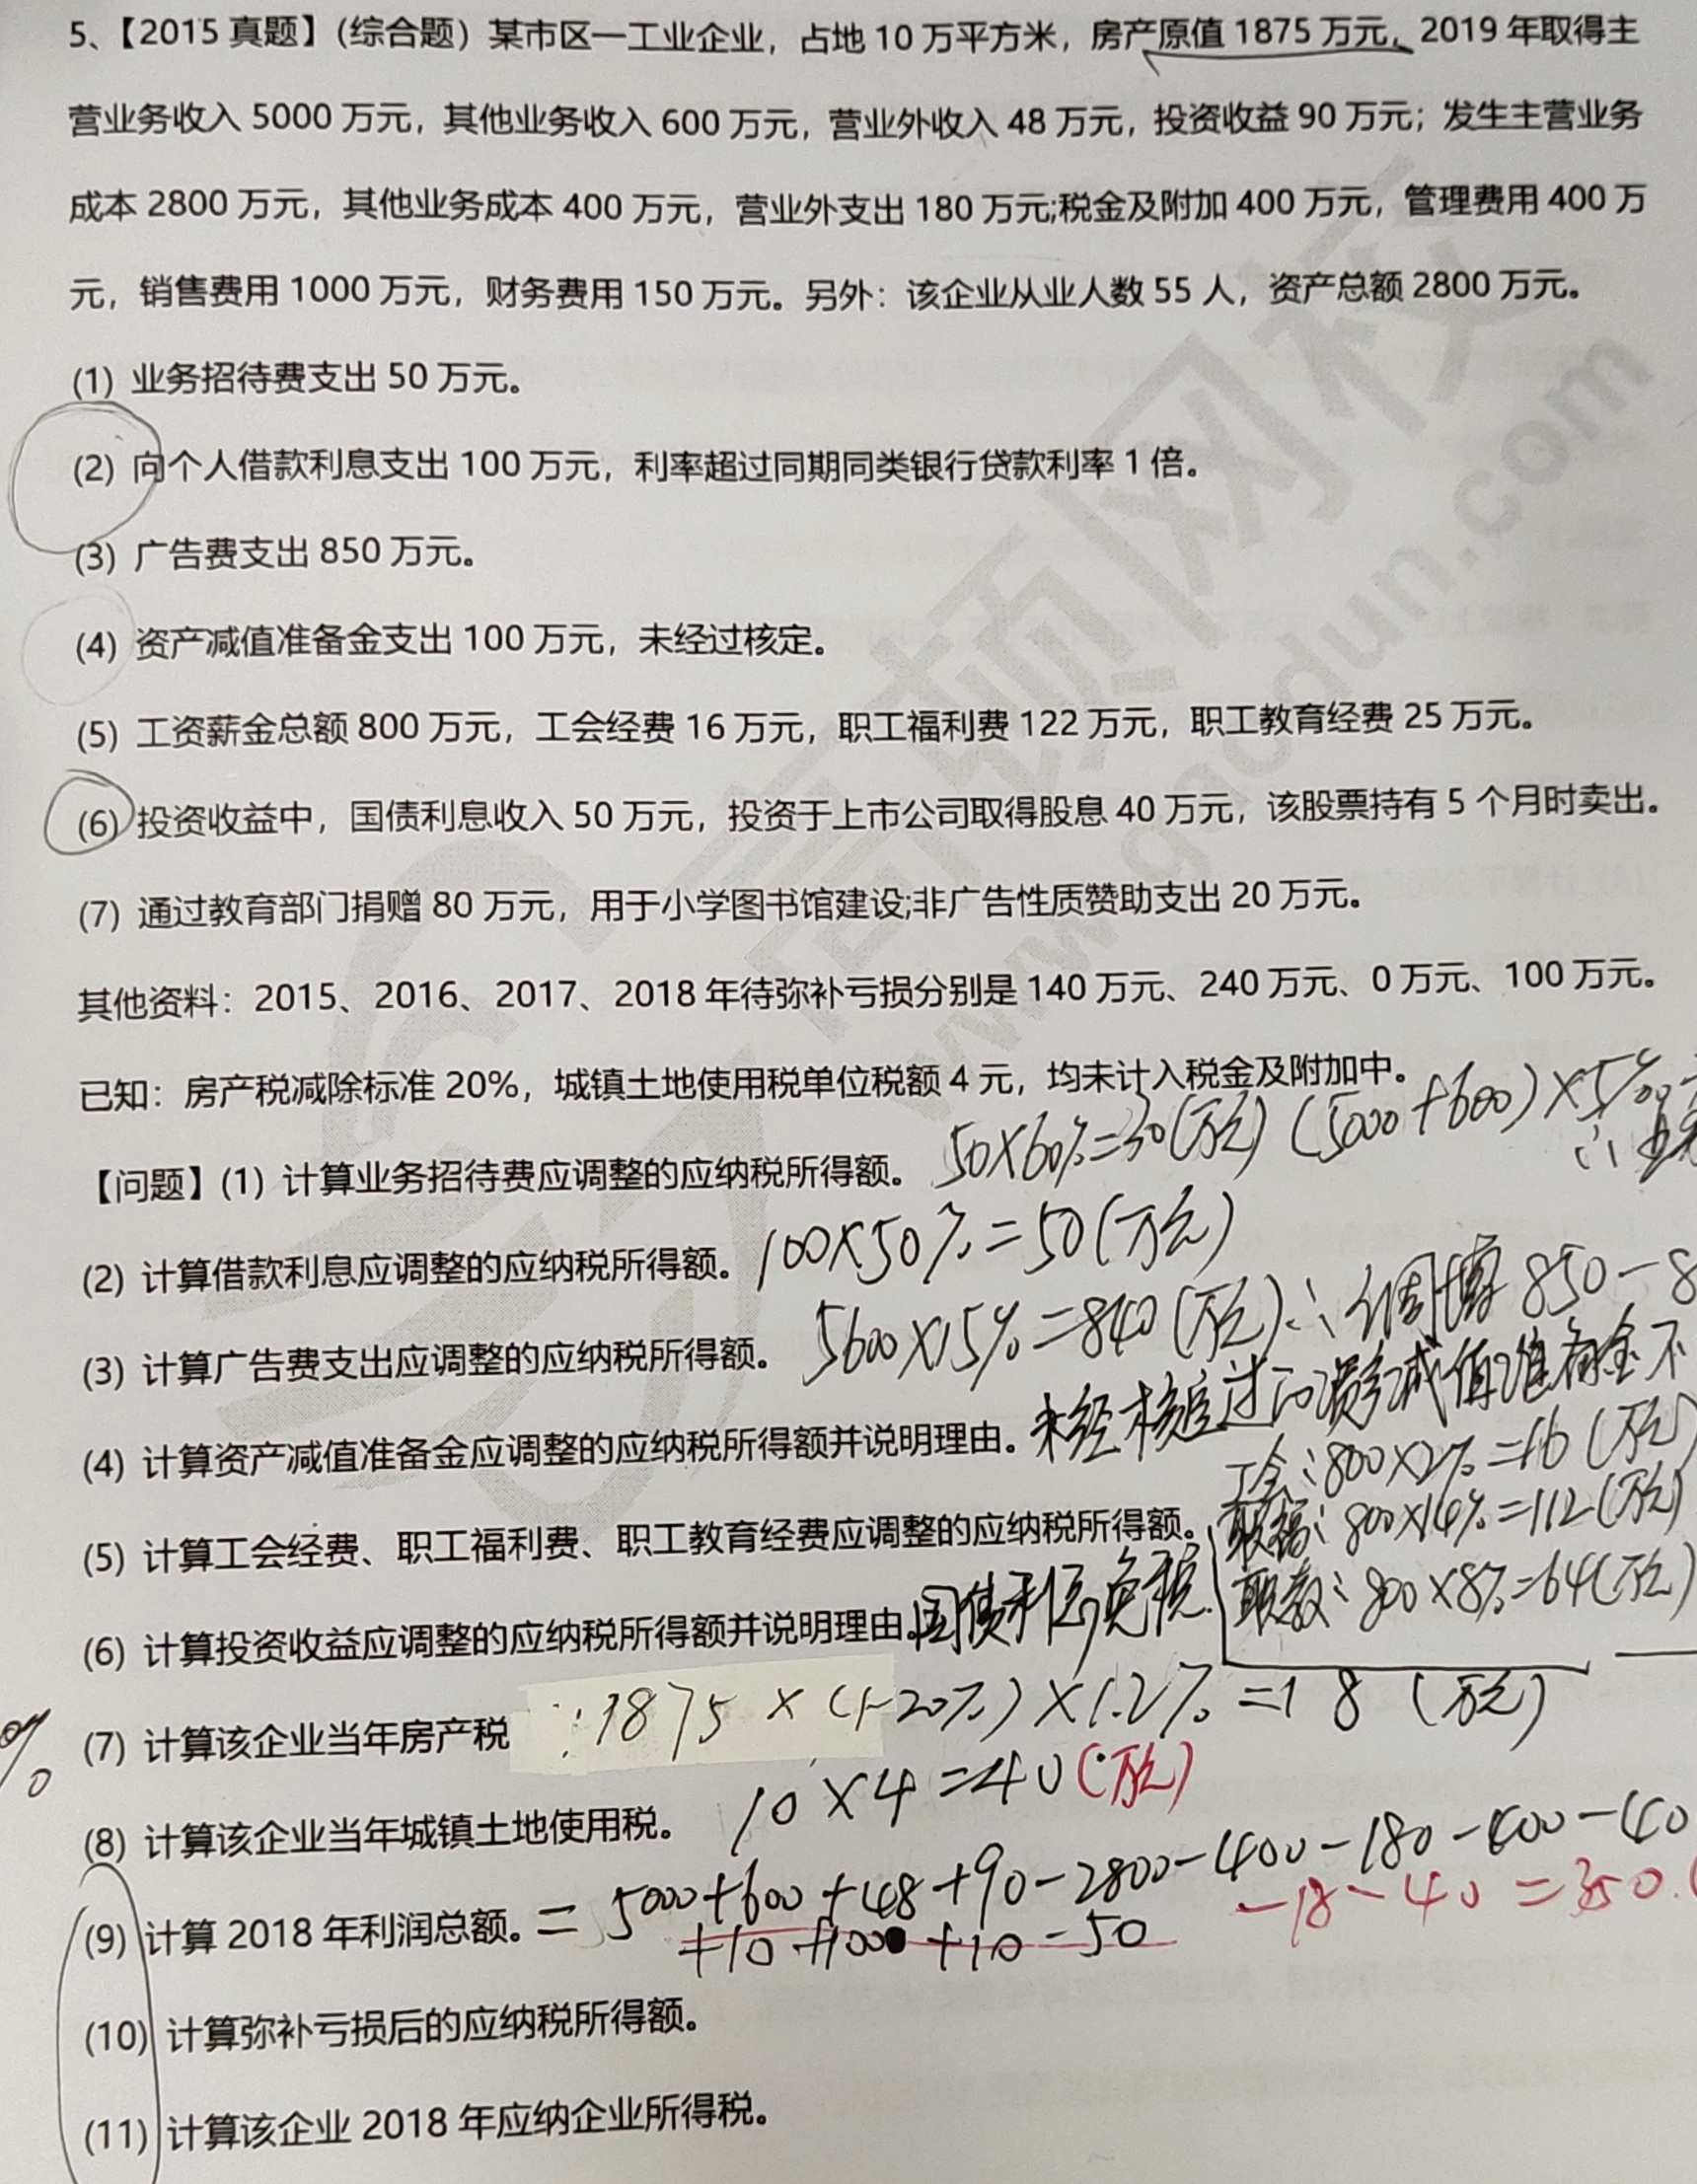 5、【2015 真题】(综合题)某市区一工业企业，占地 10 万平方米，房产原值 1875 万元，2019 年取得主
营业务收入 5000 万元，其他业务收入 600 万元，营业外收入 48 万元，投资收益 90 万元；发生主营业务
成本 2800 万元，其他业务成本 400 万元，营业外支出 180 万元;税金及附加 400 万元，管理费用 400 万
元，销售费用 1000 万元，财务费用 150 万元。另外：该企业从业人数 55 人，资产总额 2800 万元。
(1) 业务招待费支出 50 万元。
(2) 向个人借款利息支出 100 万元，利率超过同期同类银行贷款利率 1 倍。
(3) 广告费支出 850 万元。
(4) 资产减值准备金支出 100 万元，未经过核定。
(5) 工资薪金总额 800 万元，工会经费 16 万元，职工福利费 122 万元，职工教育经费 25 万元。
(6) 投资收益中，国债利息收入 50 万元，投资于上市公司取得股息 40 万元，该股票持有 5 个月时卖出。
(7) 通过教育部门捐赠 80 万元，用于小学图书馆建设;非广告性质赞助支出 20 万元。
其他资料：2015、2016、2017、2018 年待弥补亏损分别是 140 万元、240 万元、0 万元、100 万元。
已知：房产税减除标准 20%，城镇土地使用税单位税额 4 元，均未计入税金及附加中。
【问题】(1) 计算业务招待费应调整的应纳税所得额。 50×60%=30(万元) (5000+600)×5‰
(2) 计算借款利息应调整的应纳税所得额。 100×50%=50(万元)
(3) 计算广告费支出应调整的应纳税所得额。 5600×15%=840(万元) ∴ 调增 850-8
(4) 计算资产减值准备金应调整的应纳税所得额并说明理由。 未经核定过的资产减值准备金不
工会：800×2%=16(万元)
(5) 计算工会经费、职工福利费、职工教育经费应调整的应纳税所得额。 职福：800×14%=112(万元)
职教：800×8%=64(万元)
(6) 计算投资收益应调整的应纳税所得额并说明理由。 国债利息免税
(7) 计算该企业当年房产税 1875×(1-20%)×1.2%=18(万元)
(8) 计算该企业当年城镇土地使用税。 10×4=40(万元)
(9) 计算 2018 年利润总额。 =5000+600+48+90-2800-400-180-400-40
-18-40=350.
+10+100 +10-50
(10) 计算弥补亏损后的应纳税所得额。
(11) 计算该企业 2018 年应纳企业所得税。
%
高顿网校
www.gaodun.com